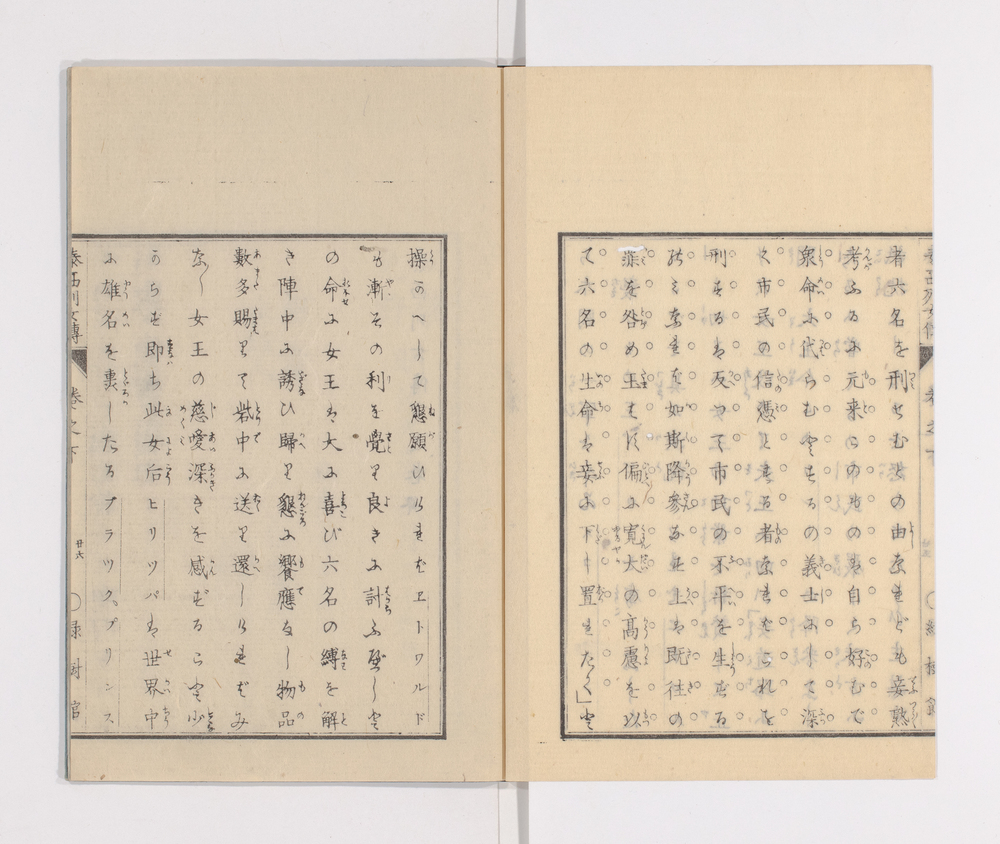 者六名を刑せむ汝の由なれども妾熟
考ふるに元来この者の自ら好むで
衆命に代らむとするの義士にして深
く市民の信憑する者なればこれを
刑するは反つて市民の不平を生ずる
のみならず如斯降参なせし上は既往の
罪を咎め玉はず偏に寛大の高慮を以
て六名の生命は妾に下し置玉たく」と
操かへして懇願ひければエドワルド
も漸その利を覺り良きに計ふべしと
の命に女王は大に喜び六名の縛を解
き陣中に誘ひ歸り懇に饗應なし物品
數多賜りて砦中に送り還しければみ
な女王の慈愛深きを感ずる少
からず即ち此女后ヒリツパは世界中
に雄名を轟したるブラツク、プリンス
泰西列女傳 卷之下 廿六